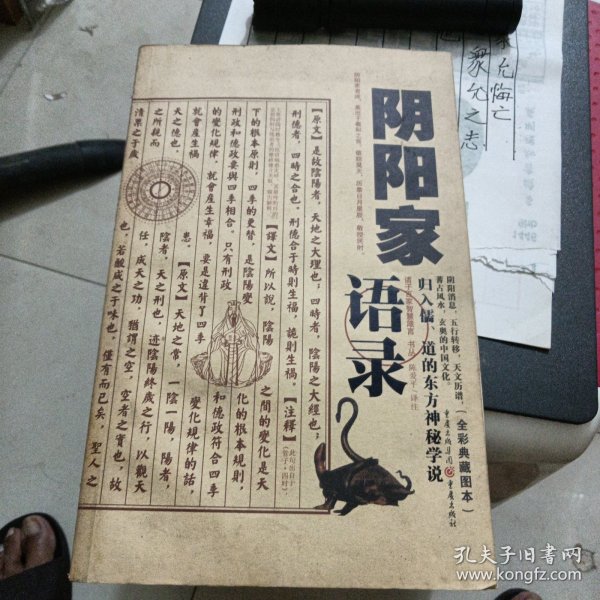 阴阳家
语录
归入儒、道的东方神秘学说
阴阳消息，五行转移，天文历谱，
著占风水，玄奥的中国文化。
（全彩典藏图本）
诸子百家智慧箴言 书丛 陈爱平/译注
重庆出版集团 重庆出版社
【原文】是故陰陽者，天地之大理也；四時者，陰陽之大經也；
刑德者，四時之合也。刑德合于時則生福，詭則生禍。【注釋】
此句出自于
《管子·四时》
【譯文】所以說，陰陽
之間的變化是天
下的根本原則，四季的更替，是陰陽變
化的根本規則，
刑政和德政要與四季相合。只有刑政
和德政符合四季
的變化規律，就會產生幸福，要是違背了四季
變化規律的話，
就會產生禍
患。【原文】天地之常，一陰一陽，陽者，
天之德也，
陰者，天之刑也，迹陰陽終歲之行，以觀天
之所親而
任，成天之功，猶謂之空，空者之實也，故
清溧之于歲
也，若酸咸之于味也，僅有而已矣，聖人之
众允之志
允悔亡
孔夫子旧书网
www.kongfz.com